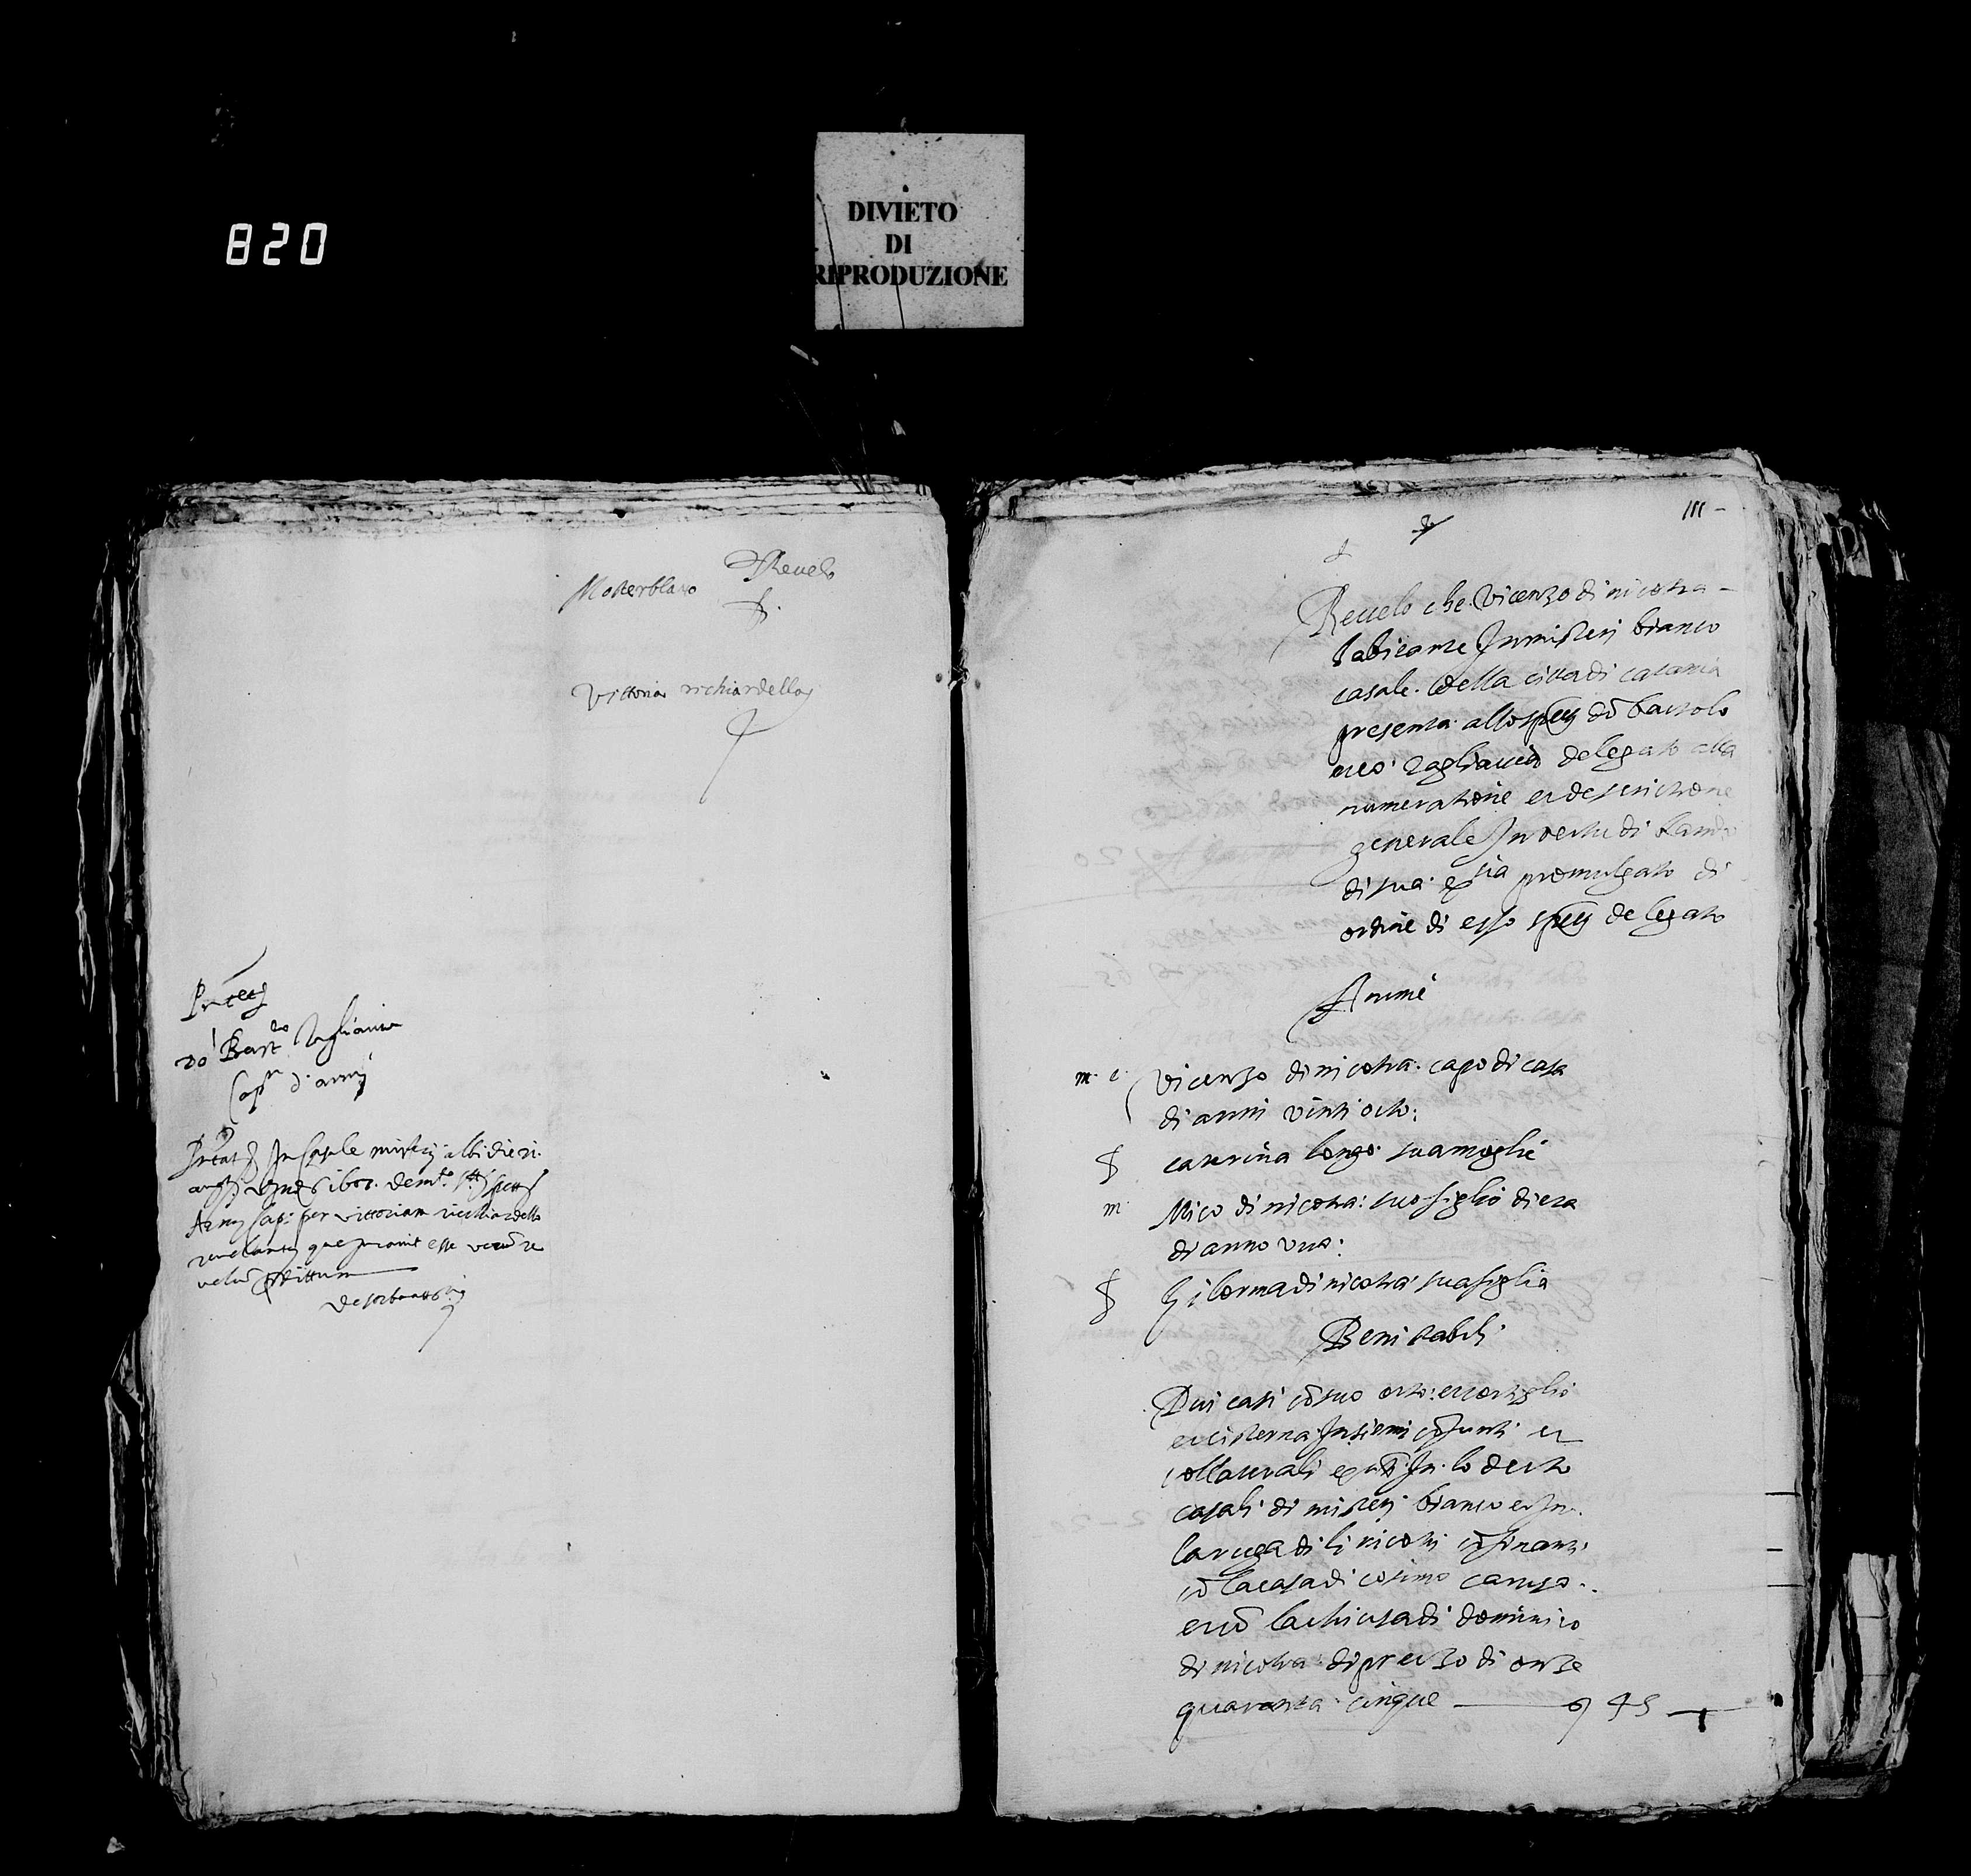 820
DIVIETO
DI
RIPRODUZIONE
Revelo
Mosterblanco
Vittoria richiardella
Don Bart.lo Tagliavia
Cap.n d'armi
In Casale misterij albi die 21
Arm. Cap. per vittoriam ricchiardella
revelantem que juravit esse verum re
velum predittum
111 -
Revelo che vicenzo di nicotra -
habitante In misteri bianco
casale della citta di catania
presenta allo spett. don bartolo
meo tagliavia delegato alla
numeratione et descrictione
generale In vertu di bando
di sua ex.tia promulgato di
ordine di esso spett. delegato
Anime
m. c. vicenzo di nicotra capo di casa
di anni vinti octo:
f caterina longo sua moglie
m. Mico di nicotra: suo figlio di eta
di anno uno:
f di nicotra sua figlia
Beni stabili
Dui casi con suo orto: et cortiglio
et cisterna Insiemi conjunti et
collaterali existenti In lo decto
casali di misteri bianco et In
la ruga di li nicotri confinanti
con la casa di cosimo caruso
et con la chiusa di dominico
di nicotra di prezzo di onze
quaranta cinque — 45